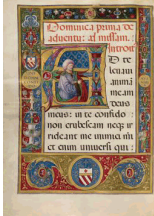 Dominica prima de
aduentu: ad missam.
introit
D te
leuaui
animā
meam
deus
meus: in te confido
non erubescam neq; ir
rideant me inimici mi
et enim uniuersi qui